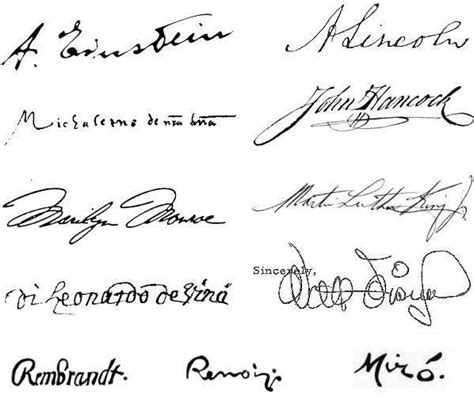 A. Einstein
A Lincoln
John Hancock
Marilyn Monroe
Martin Luther King Jr
Sincerely,
Walt Disney
di Leonardo de Vinci
Rembrandt.
Renoir.
Miró.